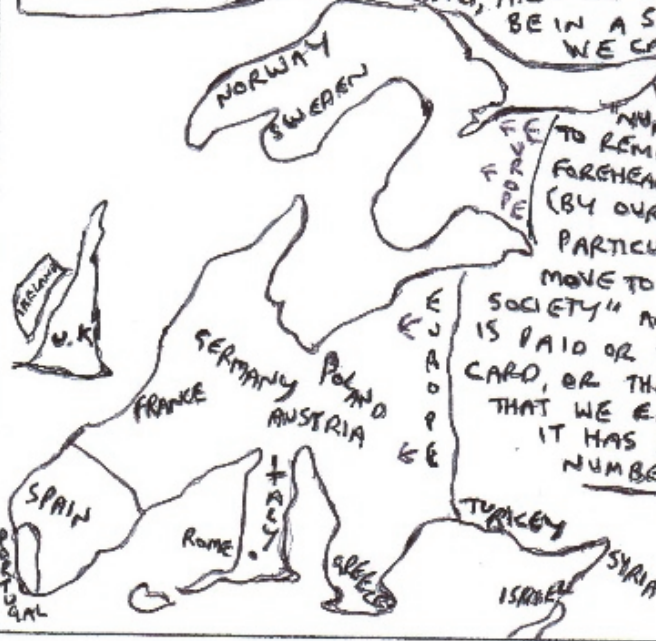 BE IN A S
WE CA
NORWAY
SWEDEN
TO REM
FOREHEA
(BY OUR
PARTICU
MOVE TO
SOCIETY" A
IS PAID OR
CARD, OR TH
THAT WE E
IT HAS
NUMBE
EUROPE
IRELAND
U.K
GERMANY
POLAND
FRANCE
AUSTRIA
EUROPE
SPAIN
PORTUGAL
ROME
ITALY
GREECE
TURKEY
SYRIA
ISRAEL